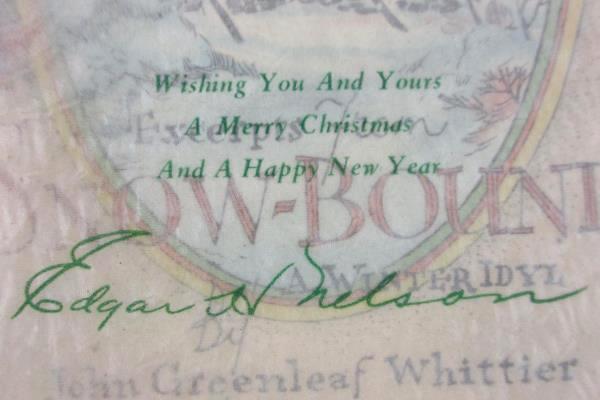 Wishing You And Yours
A Merry Christmas
Excerpts from
And A Happy New Year
SNOW-BOUND
A WINTER IDYL
Edgar H Nelson
By
John Greenleaf Whittier